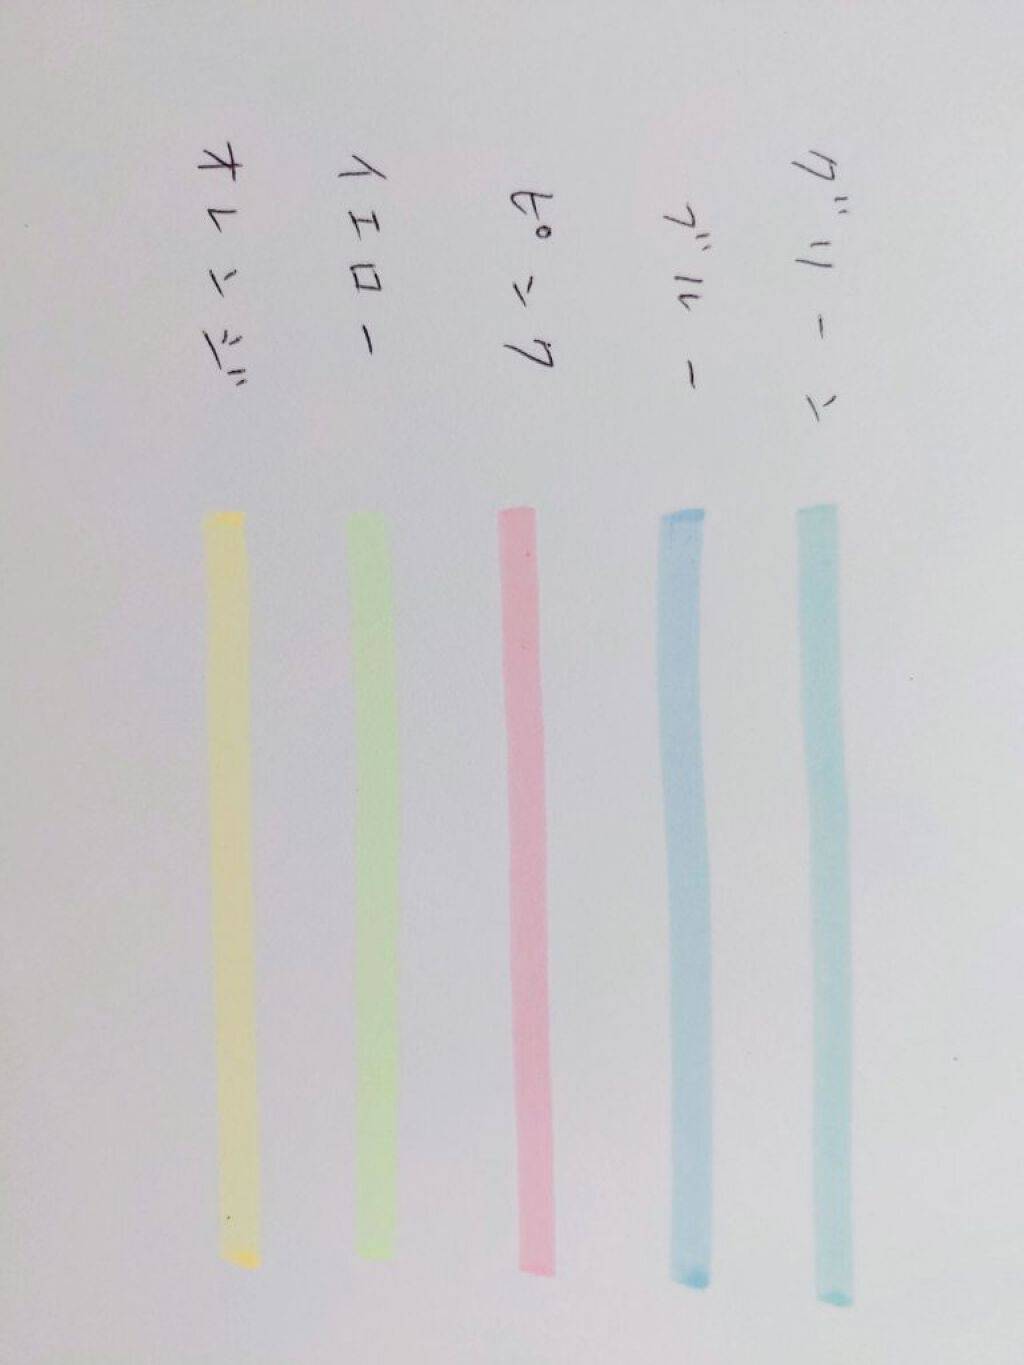 グリーン
ブルー
ピンク
イエロー
オレンジ